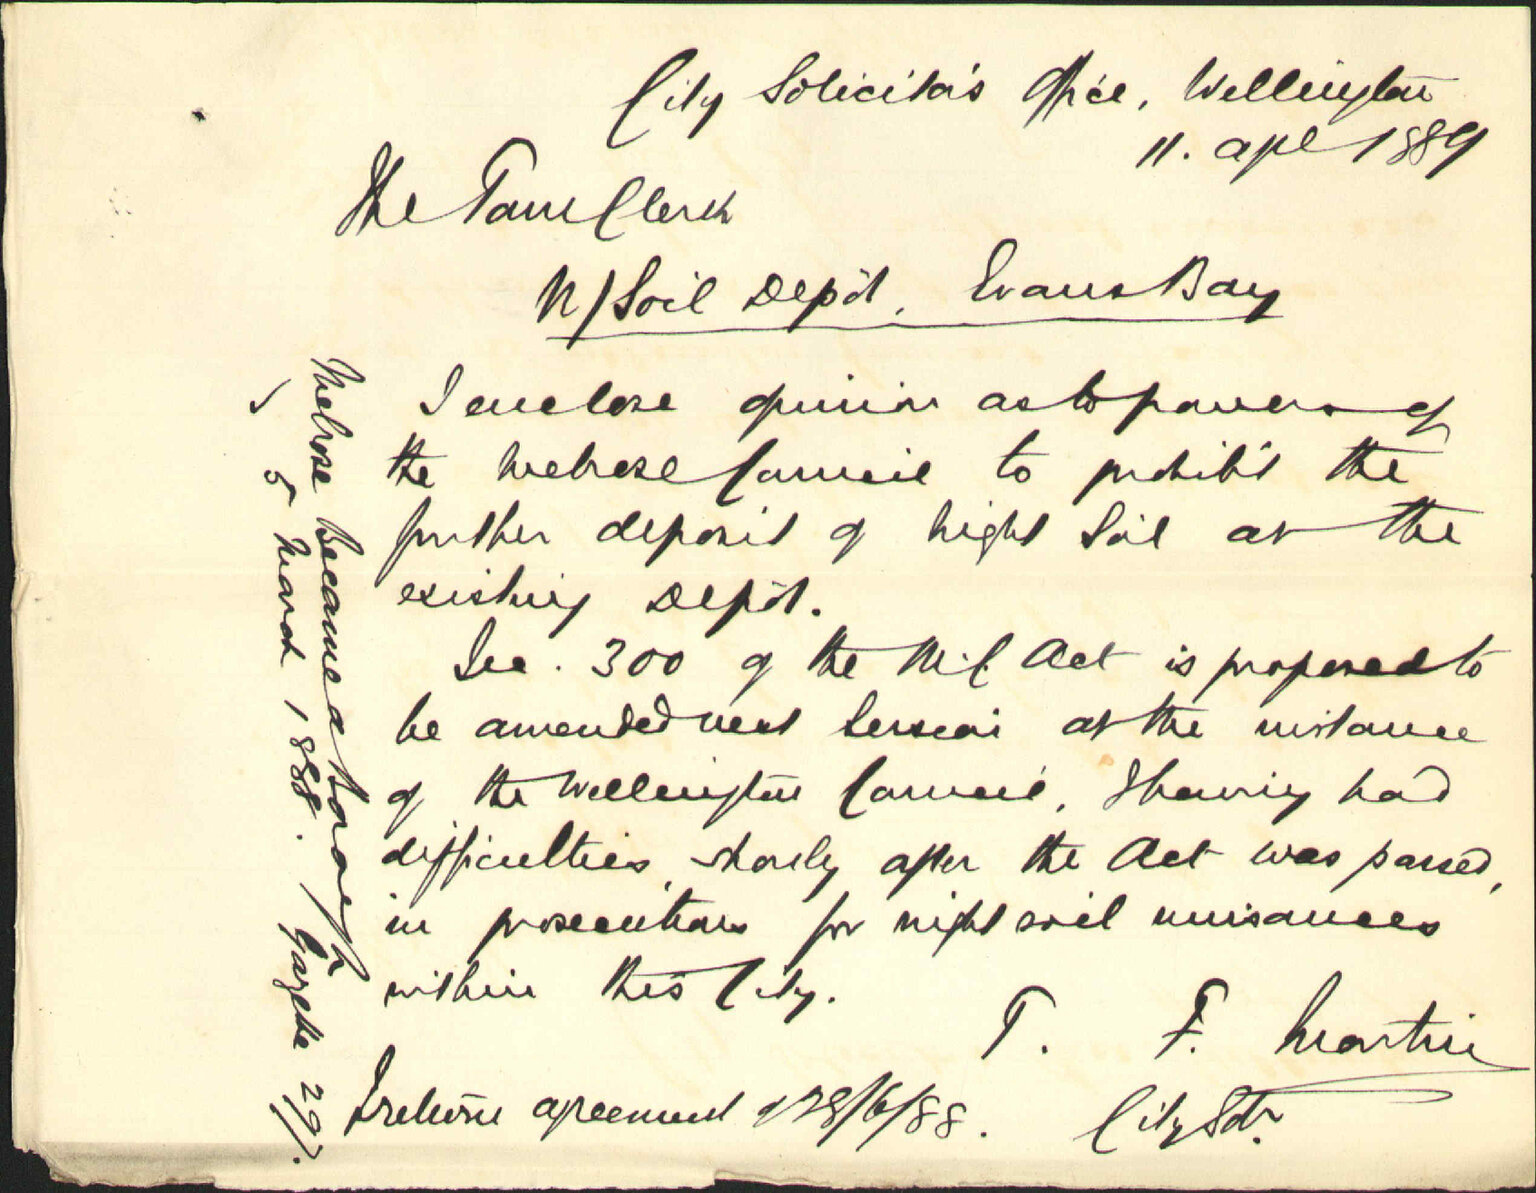 City Solicitor's Office, Wellington
11. Apl 1889
The Town Clerk
N/Soil Depôt, Evans Bay
I enclose opinion as to powers of
the Melrose Council to prohibit the
further deposit of night soil at the
existing Depôt.
Sec. 300 of the M.C. Act is proposed to
be amended next Session at the instance
of the Wellington Council, I having had
difficulties, shortly after the Act was passed,
in prosecutions for night soil nuisances
within this City.
T. F. Martin
City Solr.
I return agreement of 28/6/88.
Melrose Became a borough
5 March 1888. Gazette 29/.